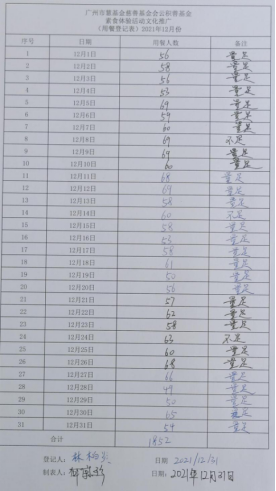 广州市慧基金会慈善基金会云积善基金
素食体验活动文化推广
(用餐登记表) 2021年12月份
序号 日期 用餐人数 备注
1 12月1日 56 量足
2 12月2日 58 量足
3 12月3日 56 量足
4 12月4日 53 量足
5 12月5日 69 量足
6 12月6日 54 量足
7 12月7日 60 量足
8 12月8日 69 不足
9 12月9日 量足
10 12月10日 60 量足
11 12月11日 68 量足
12 12月12日 69 量足
13 12月13日 58 量足
14 12月14日 60 不足
15 12月15日 58 量足
16 12月16日 量足
17 12月17日 58 量足
18 12月18日 61 量足
19 12月19日 50 量足
20 12月20日 56 量足
21 12月21日 57 量足
22 12月22日 62 量足
23 12月23日 58 量足
24 12月24日 63 不足
25 12月25日 60 量足
26 12月26日 68 量足
27 12月27日 66 量足
28 12月28日 量足
29 12月29日 50 量足
30 12月30日 65 量足
31 12月31日 54 量足
合计 1852
登记人: 林 日期 2021/12/31
制表人: 日期: 2021年12月31日